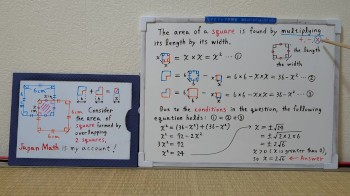 6cm
6cm
x
Consider
the area of
square formed by
overlapping
2 squares,
Japan Math is my account!
The area of a square is found by multiplying
its length by its width.
the length
the width
= x × x = x² ... ①
= 6×6 - x×x = 36 - x² ... ②
= 6×6 - x×x = 36 - x² ... ③
Due to the conditions in the question, the following
equation holds: ① = ② + ③
x² = (36-x²) + (36-x²)
3x² = 72
x² = 24
x = ±√24
= ±√2×2×6
= ±2√6
x > 0 (x is greater than 0),
so x = 2√6 ← Answer